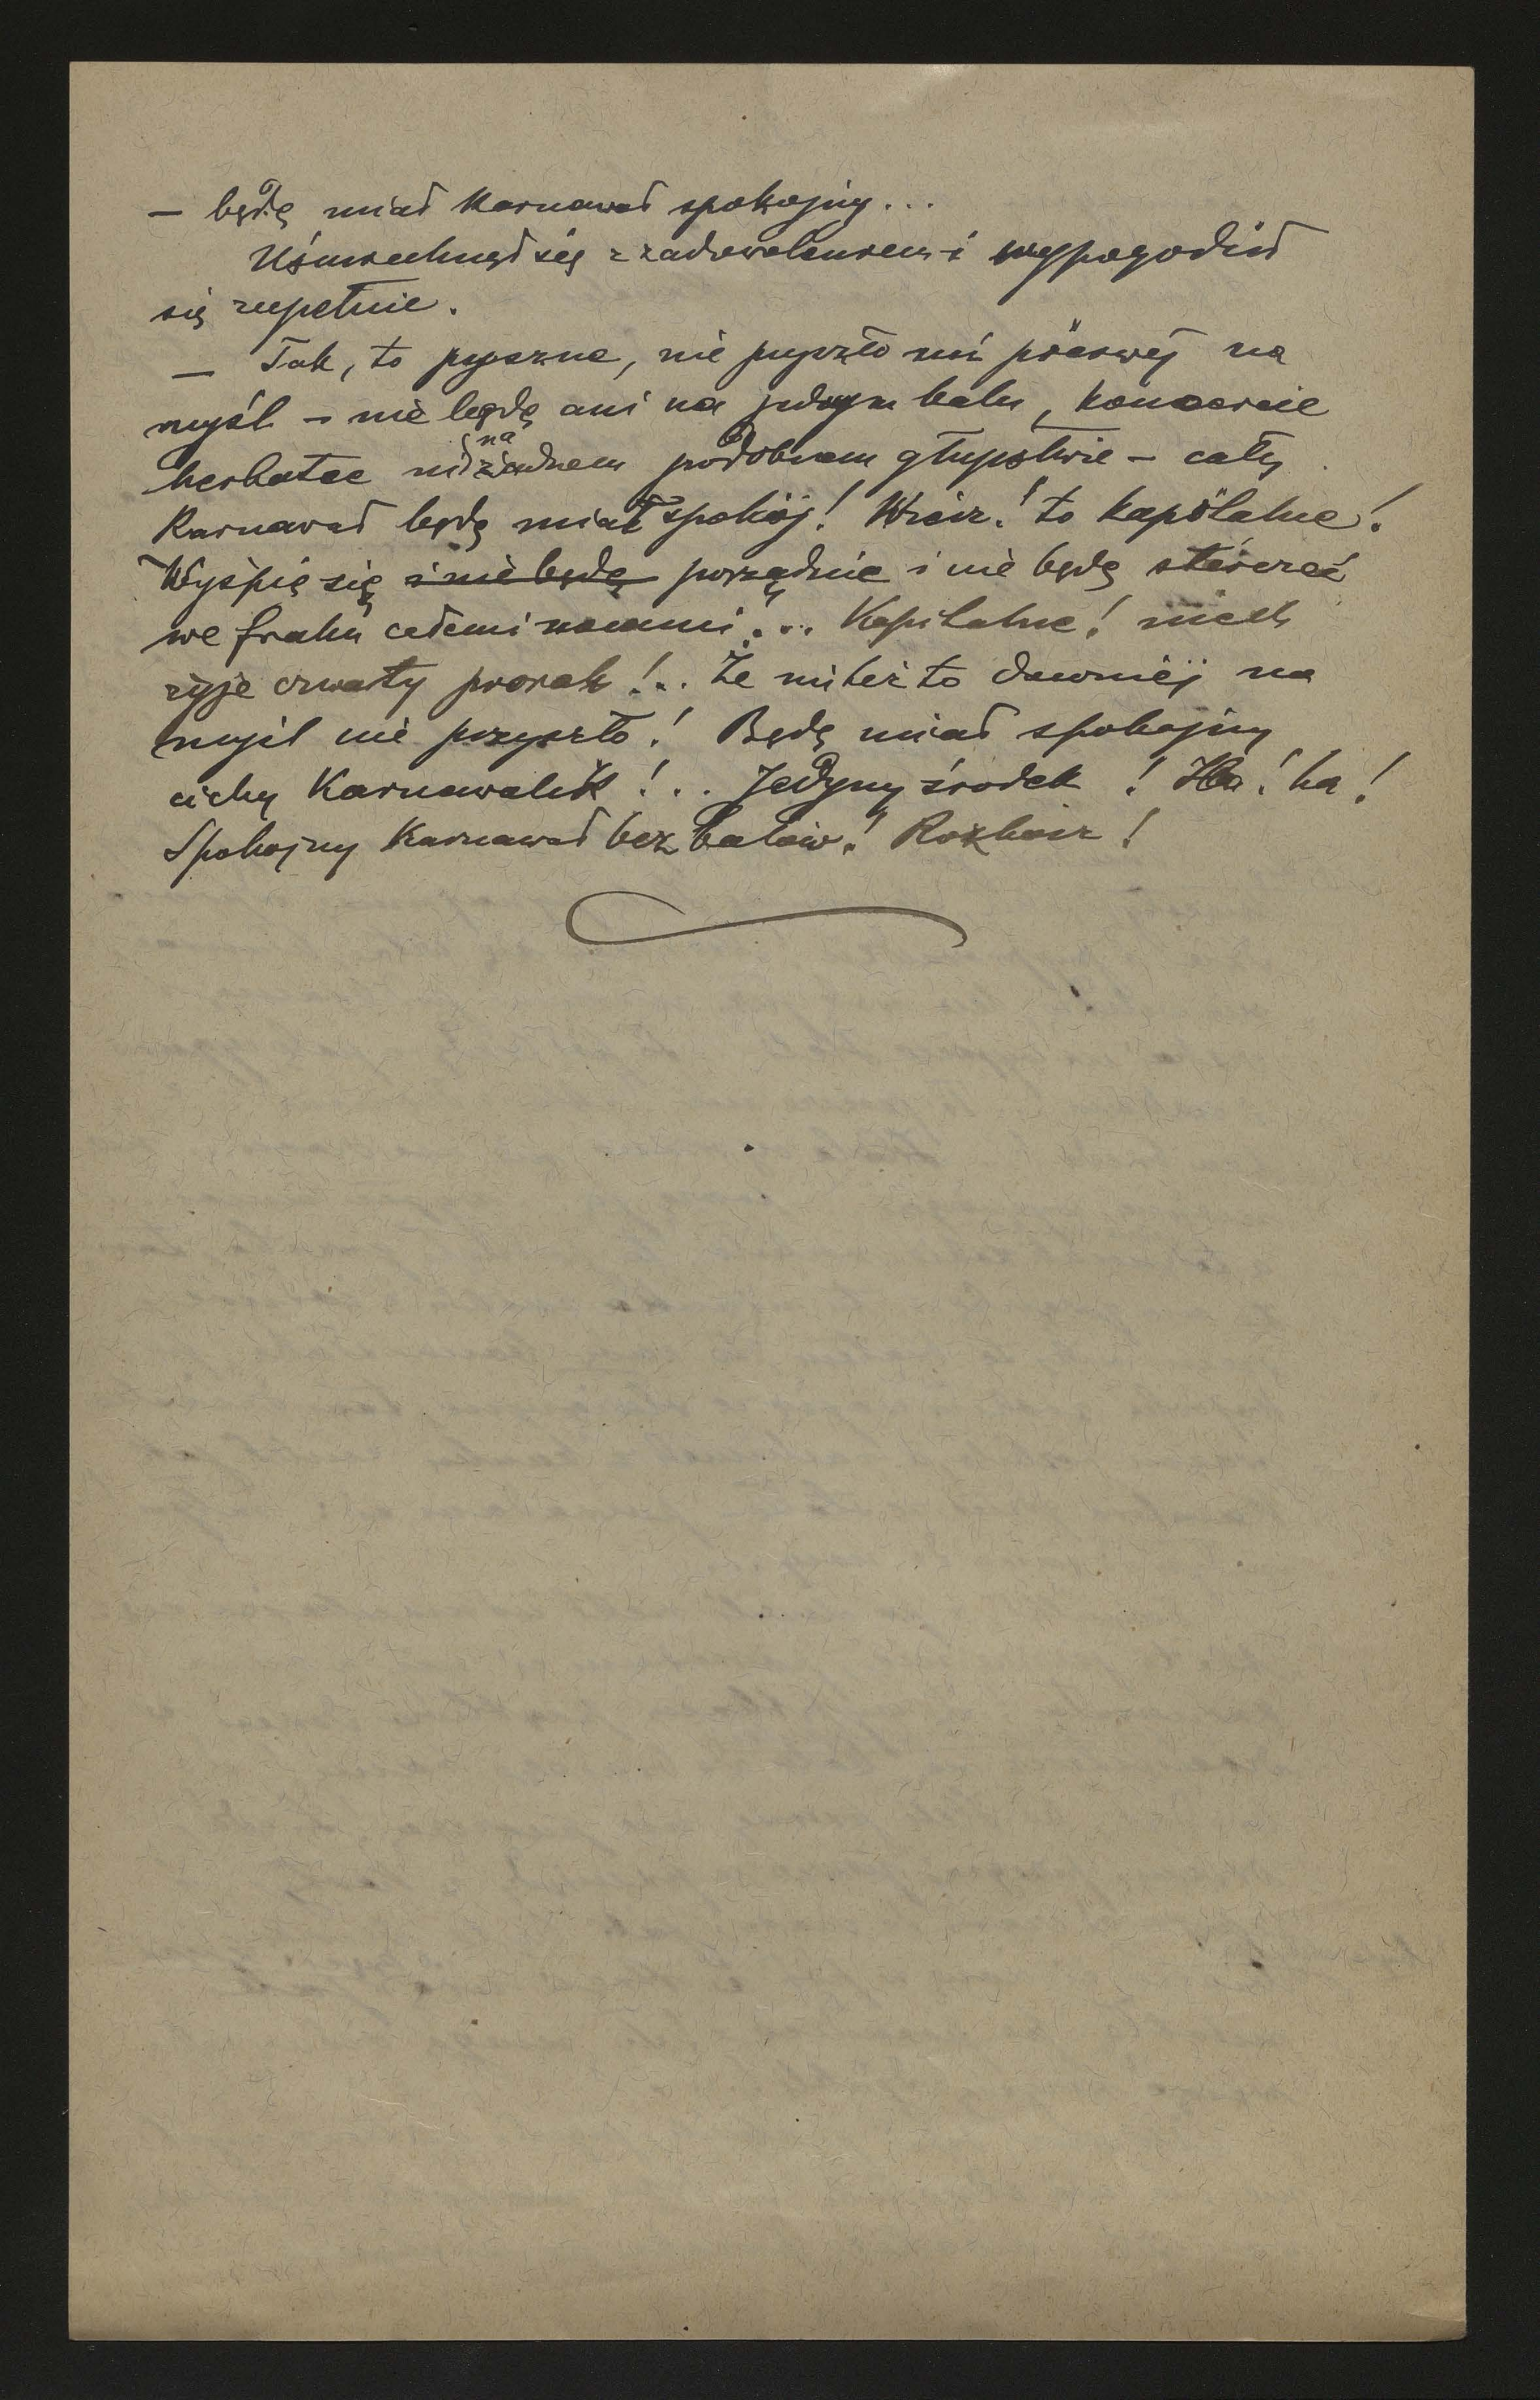 — będę miał karnawał spokojny...
Uśmiechnął się z zadowoleniem i wypogodził
się zupełnie.
— Tak, to pyszne, nie przyszło mi pierwej na
myśl – nie będę ani na jednym balu, koncercie
herbatce ni na żadnem podobnem głupstwie – cały
Karnawał będę miał spokój! Wiesz! to kapitalne!
Wyśpię się i nie będę porządnie i nie będę sterczeć
we fraku całemi nocami... Kapitalne! niech
żyje czwarty pozrak!.. Że mi też to dawniej na
myśl nie przyszło! Będę miał spokojny
cichy Karnawalik!.. Jedyny środek! Ha! ha!
Spokojny Karnawał bez balów! Rozkosz!